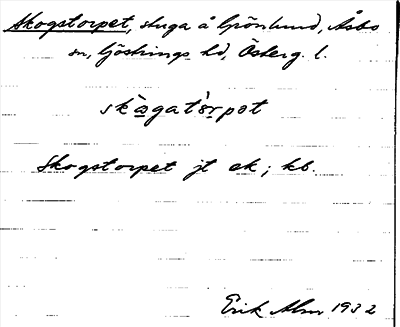 Skogstorpet, stuga å Grönlund, Åsbo
sn, Göstrings hd, Österg. l.
skògat`òrpət
Skogstorpet jt ek; kb.
Erik Abm 1932